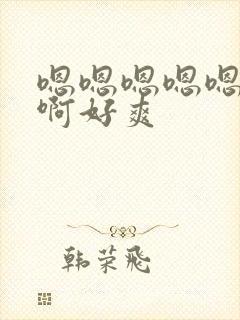 嗯嗯嗯嗯嗯
啊好爽
韩荣飛